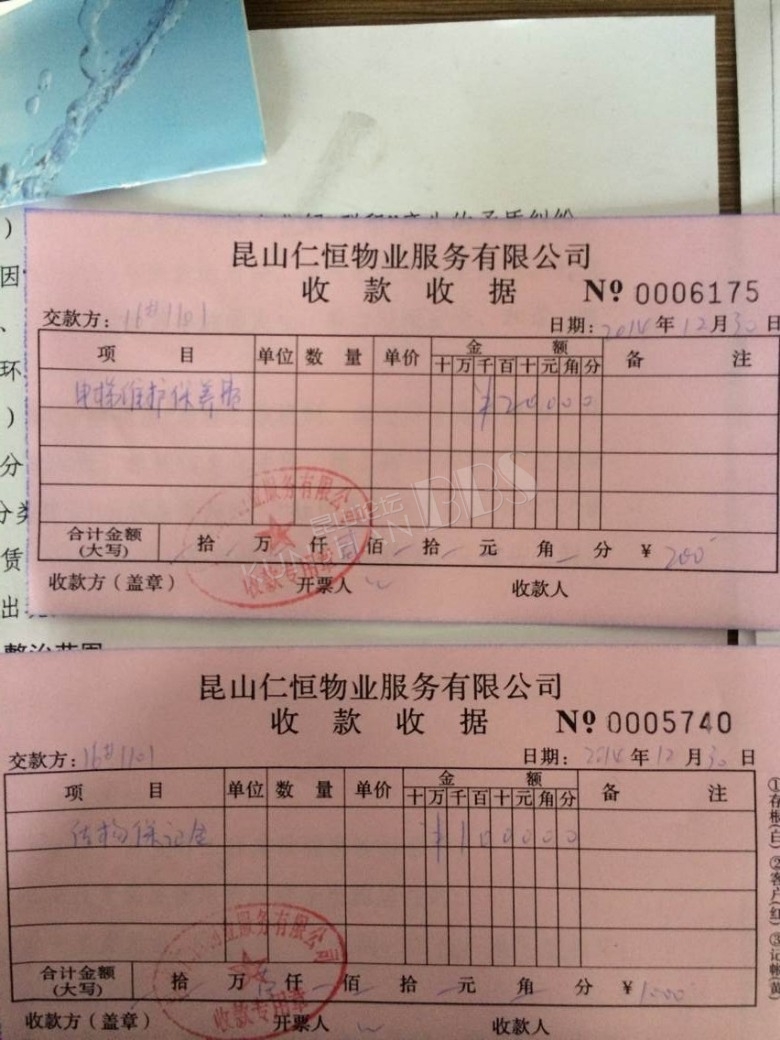 )
因
、
环
)
分
分类
赁
出
昆山仁恒物业服务有限公司
收款收据 Nº 0006175
交款方: 16#1101 日期: 2014年12月30日
项目 单位 数量 单价 金额 备注
十万千百十元角分
电梯维护保养费 ¥20000
业服务有限公司
收款专用章
昆山论坛 BBS
合计金额 拾万仟佰拾元角分 ¥ 200
(大写)
收款方(盖章) 开票人 收款人
整治范围
昆山仁恒物业服务有限公司
收款收据 Nº 0005740
交款方: 16#1101 日期: 2014年12月30日
项目 单位 数量 单价 金额 备注
十万千百十元角分
结构保证金 ¥100000
业服务有限公司
收款专用章
合计金额 拾万仟佰拾元角分 ¥ 1000
(大写)
收款方(盖章) 开票人 收款人
①存根(白) ②客户(红) ③记帐(黄)